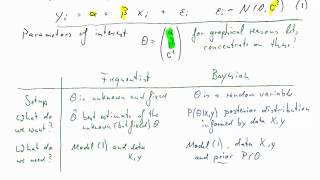 Yi = α + β xi + εi   εi ~ N(0, σ²) (1)
Parameters of interest θ = (α β σ²) for graphical reasons let's concentrate on these!
Frequentist Bayesian
Setup θ is unknown and fixed θ is a random variable
What do we want? θ̂ best estimate of the unknown (but fixed) θ P(θ|X,y) posterior distribution informed by data X,y
What do we need? Model (1) and data X,y Model (1), data X,y and prior P(θ